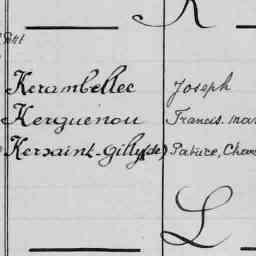 K
Kerambellec Joseph
Kerguenou Francis. mar
Kersaint-Gilly (de) Patrice, Char
L